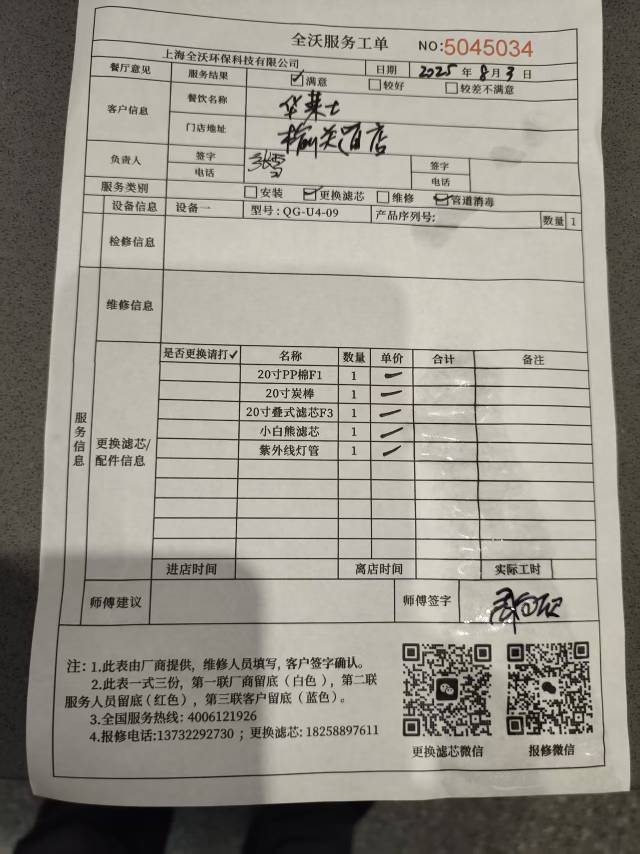 全沃服务工单 NO:5045034
上海全沃环保科技有限公司 日期 2025 年 8 月 3 日
餐厅意见 服务结果 ☑满意 □较好 □较差不满意
客户信息 餐饮名称 华莱士
门店地址 酒店
负责人 签字 签字
电话 电话
服务类别 □安装 ☑更换滤芯 □维修 ☑管道消毒
设备信息 设备一 型号:QG-U4-09 产品序列号: 数量 1
检修信息
维修信息
服务信息
更换滤芯/配件信息
是否更换请打✓ 名称 数量 单价 合计 备注
20寸PP棉F1 1 —
20寸炭棒 1 —
20寸叠式滤芯F3 1 —
小白熊滤芯 1 —
紫外线灯管 1 —
进店时间 离店时间 实际工时
师傅建议 师傅签字
注:1.此表由厂商提供,维修人员填写,客户签字确认。
2.此表一式三份,第一联厂商留底(白色),第二联
服务人员留底(红色),第三联客户留底(蓝色)。
3.全国服务热线:4006121926
4.报修电话:13732292730;更换滤芯:18258897611
更换滤芯微信 报修微信